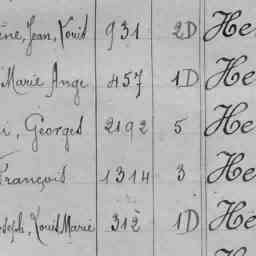 ène, Jean, Louis 931 2D He
Marie Ange 457 1D He
i, Georges 2192 5 He
François 1314 3 He
oseph, Louis Marie 312 1D He